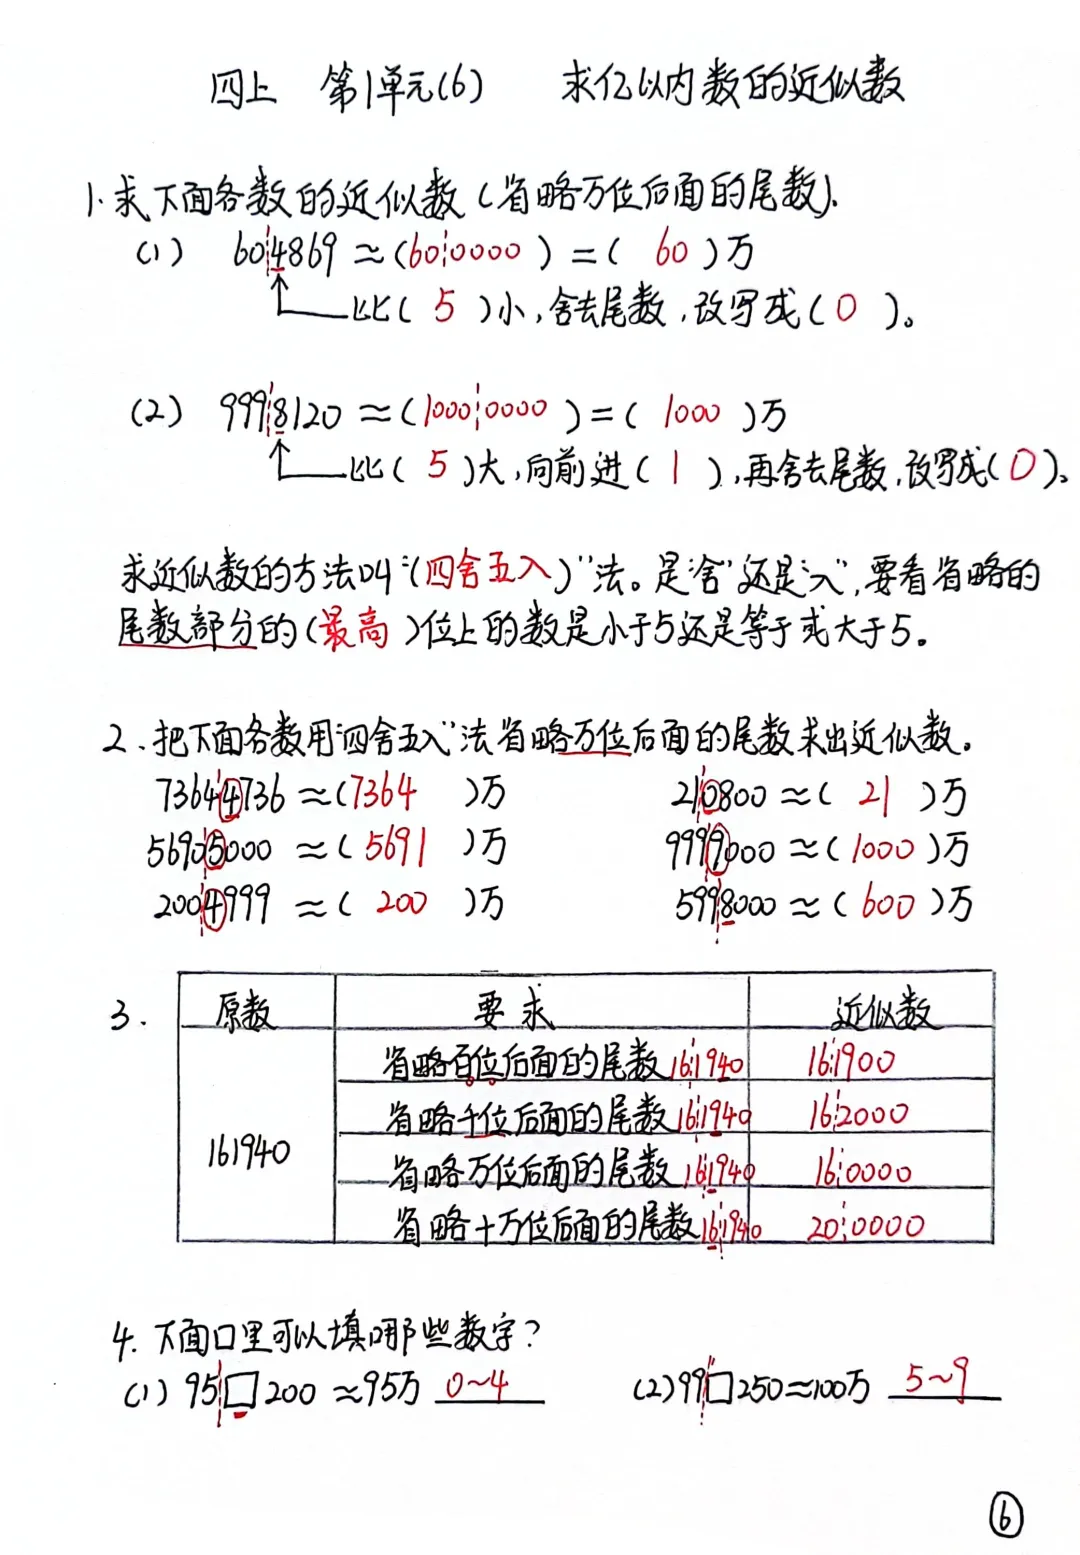 四上 第1单元(6) 求亿以内数的近似数
1.求下面各数的近似数(省略万位后面的尾数).
(1) 604869≈(600000)=( 60 )万
比( 5 )小,舍去尾数,改写成( 0 )。
(2) 9998120≈(10000000)=( 1000 )万
比( 5 )大,向前进( 1 ),再舍去尾数,改写成( 0 )。
求近似数的方法叫“(四舍五入)”法。是“舍”还是“入”,要看省略的
尾数部分的(最高)位上的数是小于5还是等于或大于5。
2、把下面各数用“四舍五入”法省略万位后面的尾数求出近似数。
73644736≈(7364 )万 210800≈( 21 )万
56905000≈( 5691 )万 9999000≈( 1000 )万
2004999≈( 200 )万 5998000≈( 600 )万
3. 原数 要求 近似数
省略百位后面的尾数 161940 161900
省略千位后面的尾数 161940 162000
161940
省略万位后面的尾数 161940 160000
省略十万位后面的尾数 161940 200000
4. 下面口里可以填哪些数字?
(1) 95□200≈95万 0~4 (2) 99□250≈100万 5~9
⑥